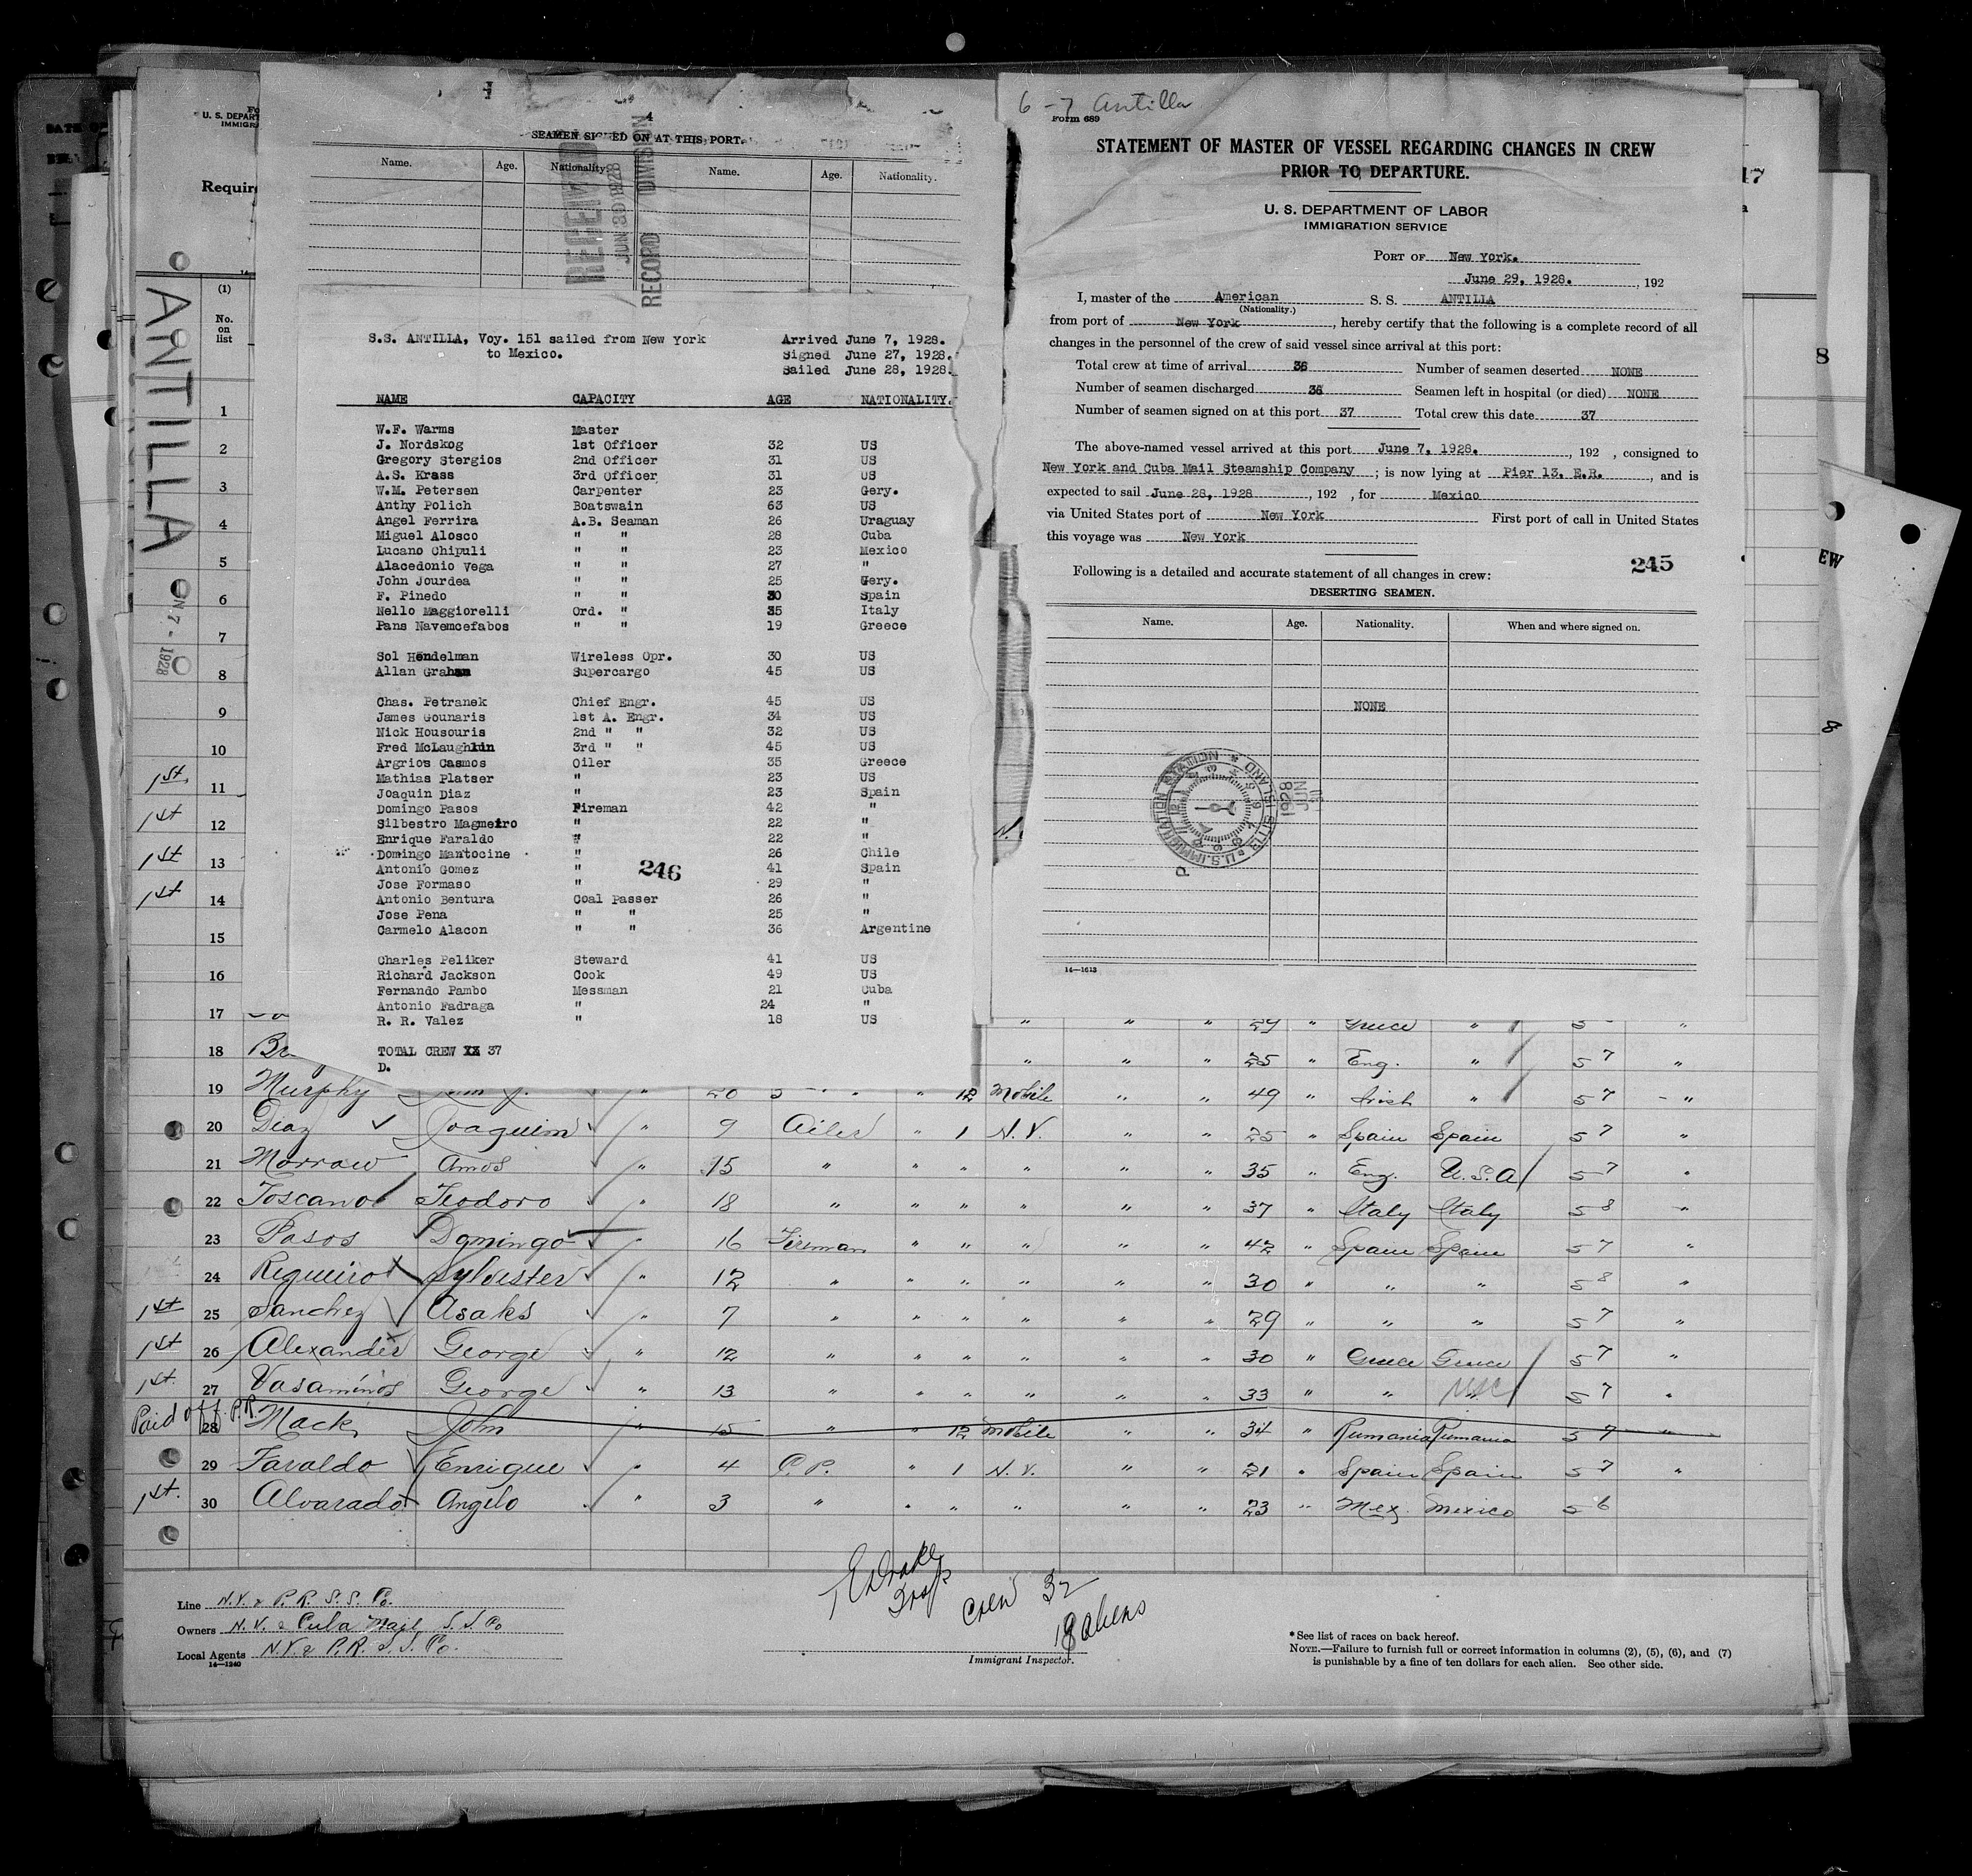 DATE OF
Fo
U. S. DEPART
IMMIGRA
Require
14
(1)
No.
on
list
ANTILLA
N 7 - 1928
4
SEAMEN SIGNED ON AT THIS PORT.
Name. Age. Nationality. Name. Age. Nationality.
RECEIVED
JUN 30 1928
RECORD DIVISION
S.S. ANTILLA, Voy. 151 sailed from New York Arrived June 7, 1928.
to Mexico. Signed June 27, 1928.
Sailed June 28, 1928.
NAME CAPACITY AGE NATIONALITY.
W.F. Warms Master
J. Nordskog 1st Officer 32 US
Gregory Stergios 2nd Officer 31 US
A.S. Krass 3rd Officer 31 US
W.M. Petersen Carpenter 23 Gery.
Anthy Polich Boatswain 63 US
Angel Ferrira A.B. Seaman 26 Uraguay
Miguel Alosco " " 28 Cuba
Lucano Chipuli " " 23 Mexico
Alacedonio Vega " " 27 "
John Jourdea " " 25 Gery.
F. Pinedo " " 30 Spain
Nello Maggiorelli Ord. " 35 Italy
Pans Navemcefabos " " 19 Greece
Sol Hendelman Wireless Opr. 30 US
Allan Graham Supercargo 45 US
Chas. Petranek Chief Engr. 45 US
James Gounaris 1st A. Engr. 34 US
Nick Housouris 2nd " " 32 US
Fred McLaughlin 3rd " " 45 US
Argrios Casmos Oiler 35 Greece
Mathias Platser " 23 US
Joaquin Diaz " 23 Spain
Domingo Pasos Fireman 42 "
Silbestro Magneiro " 22 "
Enrique Faraldo " 22 "
Domingo Mantocine " 26 Chile
Antonio Gomez " 41 Spain
246
Jose Formaso " 29 "
Antonio Bentura Coal Passer 26 "
Jose Pena " " 25 "
Carmelo Alacon " " 36 Argentine
Charles Peliker Steward 41 US
Richard Jackson Cook 49 US
Fernando Pambo Messman 21 Cuba
Antonio Fadraga " 24 "
R. R. Valez " 18 US
TOTAL CREW XX 37
D.
6 - 7 Antilla
Form 689
STATEMENT OF MASTER OF VESSEL REGARDING CHANGES IN CREW
PRIOR TO DEPARTURE.
U. S. DEPARTMENT OF LABOR
IMMIGRATION SERVICE
PORT OF New York.
June 29, 1928. , 192
I, master of the American S. S. ANTILLA
(Nationality.)
from port of New York , hereby certify that the following is a complete record of all
changes in the personnel of the crew of said vessel since arrival at this port:
Total crew at time of arrival 36 Number of seamen deserted NONE
Number of seamen discharged 36 Seamen left in hospital (or died) NONE
Number of seamen signed on at this port 37 Total crew this date 37
The above-named vessel arrived at this port June 7, 1928. , 192 , consigned to
New York and Cuba Mail Steamship Company ; is now lying at Pier 13. E.R. , and is
expected to sail June 28, 1928 , 192 , for Mexico
via United States port of New York First port of call in United States
this voyage was New York
245
Following is a detailed and accurate statement of all changes in crew:
DESERTING SEAMEN.
Name. Age. Nationality. When and where signed on.
NONE
U.S. IMMIGRATION STATION ELLIS ISLAND
JUN 1928
14—1613
17
8
EW
8
1
2
3
4
5
6
7
8
9
10
1st 11
1st 12
1st 13
1st 14
15
16
17 " " " 29 " Greece " 5 "
18 " " " 25 " Eng. " 5 7 "
19 Murphy " 20 " 12 Mobile " " 49 " Irish " 5 7 "
20 Diaz Joaquim " 9 Oiler " 1 N.Y. " " 25 " Spain Spain 5 7 "
21 Morrow Amos " 15 " " " " " " 35 " Eng. U.S.A 5 7 "
22 Toscano Teodoro " 18 " " " " " " 37 " Italy Italy 5 8 "
23 Pasos Domingo " 16 Fireman " " " " " 42 " Spain Spain 5 7 "
24 Regueiro Sylvester " 12 " " " " " " 30 " " " 5 8 "
1st 25 Sanchez Asaks " 7 " " " " " " 29 " " " 5 7 "
1st 26 Alexander George " 12 " " " " " " 30 " Greece Greece 5 7 "
1st. 27 Vasaminos George " 13 " " " " " " 33 " " " 5 7 "
Paid off P.R. 28 Mack John " 15 " " 12 Mobile " " 34 " Rumania Rumania 5 7 "
29 Faraldo Enrique " 4 C.P. " 1 N.Y. " " 21 " Spain Spain 5 7 "
1st. 30 Alvarado Angelo " 3 " " " " " " 23 " Mex. Mexico 5 6
Crew 32
18 aliens
Line N.Y. & P.R. S.S. Co.
Owners N.Y. & Cuba Mail S.S. Co
Local Agents N.Y. & P.R. S.S. Co.
14—1240
Immigrant Inspector.
*See list of races on back hereof.
NOTE.—Failure to furnish full or correct information in columns (2), (5), (6), and (7)
is punishable by a fine of ten dollars for each alien. See other side.